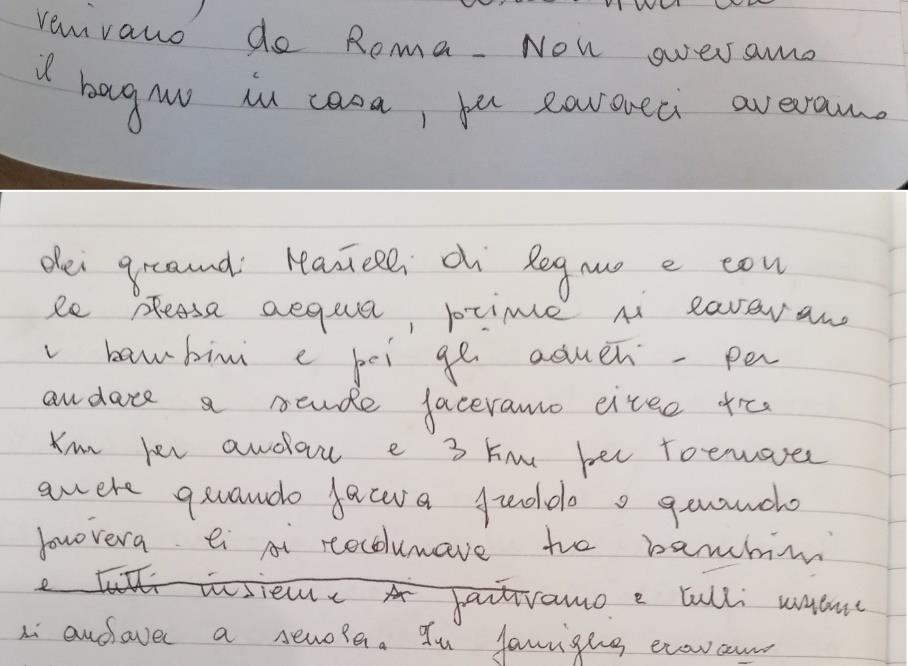 venivano da Roma - Non avevamo
il bagno in casa, per lavarci avevamo
dei grandi Mastelli di legno e con
la stessa acqua, prima si lavavano
i bambini e poi gli adulti - per
andare a scuola facevamo circa tre
Km per andare e 3 Km per Tornare
anche quando faceva freddo o quando
pioveva. Ci si radunava tra bambini
e tutti insieme si partivamo e tutti insieme
si andava a scuola. In famiglia eravamo